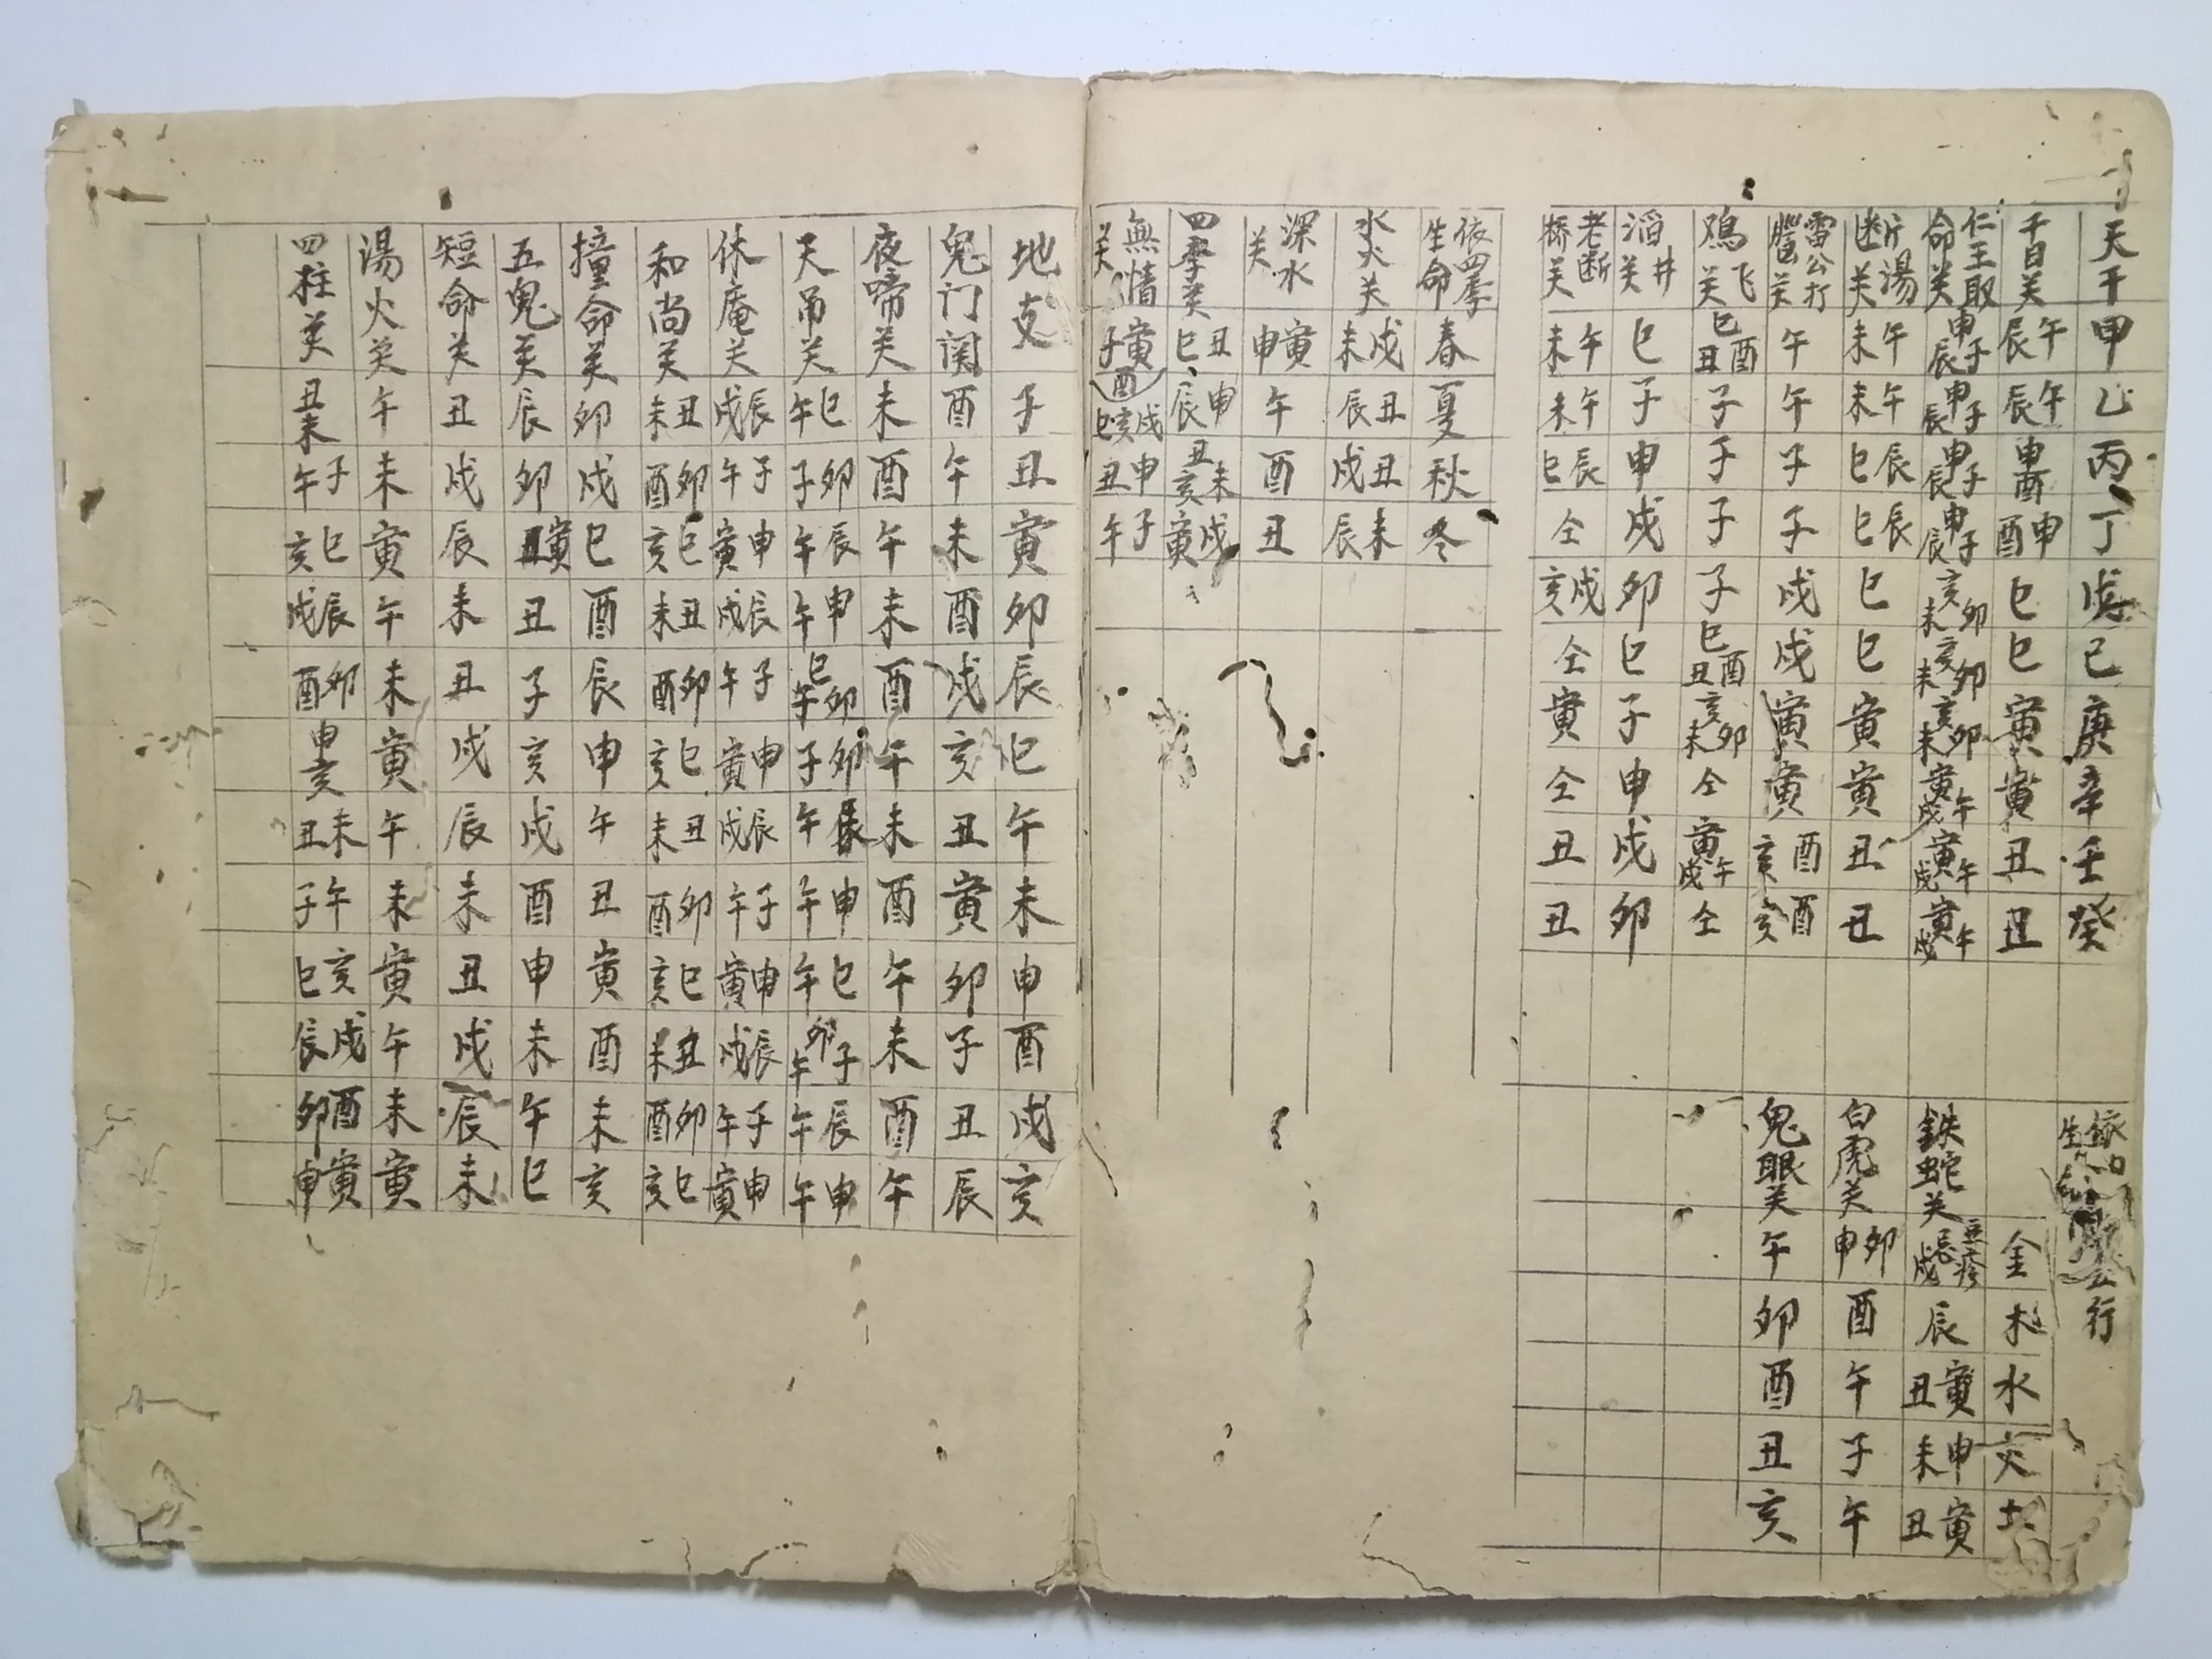 天干甲乙丙丁戊己庚辛壬癸
千日关 午辰 午辰 申酉 申酉 巳 巳 寅 寅 丑 丑
仁王取命关 申子辰 申子辰 申子辰 申子辰 亥卯未 亥卯未 亥卯未 寅午戌 寅午戌 寅午戌
断湯关 午未 午未 辰巳 辰巳 巳 巳 寅 寅 丑 丑
雷公打 关 午 午 子 子 戌 戌 寅 寅 酉亥 酉亥
鳮飞关 巳酉丑 子 子 子 子 巳酉丑 亥卯未 仝 寅午戌 仝
滔井关 巳 子 申 戌 卯 巳 子 申 戌 卯
老断桥关 午未 午未 辰巳 仝 戌亥 仝 寅 仝 丑 丑
依四季生命 春 夏 秋 冬
水火关 戌未 丑辰 丑戌 未辰
深水关 寅申 午 酉 丑
四季关 丑巳 申辰 丑未亥 戌寅
無情关 寅酉子 戌亥巳 申丑 子午
行
金 木 水 火 土
鉄蛇关 忌 戌 辰 寅丑 申未 寅丑
白虎关 卯申 酉 午 子 午
鬼眼关 午 卯 酉 丑 亥
地支 子 丑 寅 卯 辰 巳 午 未 申 酉 戌 亥
鬼门関 酉 午 未 酉 戌 亥 丑 寅 卯 子 丑 辰
夜啼关 未 酉 午 未 酉 午 未 酉 午 未 酉 午
天吊关 巳午 卯子 辰午 申午 巳卯午 卯子 辰午 申午 巳午 卯子午 辰午 申午
休庵关 辰戌 子午 申寅 辰戌 子午 申寅 辰戌 子午 申寅 辰戌 子午 申寅
和尚关 丑未 卯酉 巳亥 丑未 卯酉 巳亥 丑未 卯酉 巳亥 丑未 卯酉 巳亥
撞命关 卯 戌 巳 酉 辰 申 午 丑 寅 酉 未 亥
五鬼关 辰 卯 寅丑 丑 子 亥 戌 酉 申 未 午 巳
短命关 丑 戌 辰 未 丑 戌 辰 未 丑 戌 辰 未
湯火关 午 未 寅 午 未 寅 午 未 寅 午 未 寅
四柱关 丑未 子午 巳亥 辰戌 卯酉 申亥 未丑 午子 亥巳 戌辰 酉卯 寅申